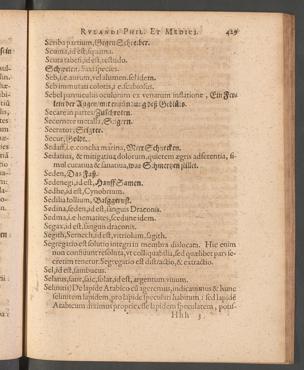 RVLANDI PHIL. ET MEDICI. 429
Scriba partium, Gegen Schreiber.
Scuma, id est, squama.
Scuta tabesi, id est, testudo.
Saxi species.
Seb, i.e. aurum, vel alumen, sel idem.
Seb immutat colotis, i.e. scabiosus.
Sebel pannuculi oculorum ex venarum inflatione,
der Augen
Secare in partes, Zuschroten.
Secernere metalla, Seigern.
Secretor, Seigerer.
Secur, Goldt.
Sedaff, i.e. concha marina, Meer Schnecken.
Sedatiua, & mitigatiua dolorum, quietem ægris adferentia, si-
mul curatiua & sanatiua, was Schmertzen stillet.
Seden, Das Faß.
Sedenegi, id est, Hanff Samen.
Sedhe, id est, Cynobrium.
Sedilia tollium,
Sedina, seden, id est, sanguis Draconis.
Sedma, i.e. hematites, scedine idem.
Segax, id est, sanguis draconis.
Segith, Sernech, id est, vitriolum, sagith.
Segregatio est solutio integri in membra dislocati. Hic enim
non constituunt resoluta, vt colliquabilia, sed quælibet pars se-
cretim tenetur. Segregatio est distractio, & extractio.
Sel, id est, sambucus.
id est, argentum viuum.
De lapide Arabico cùm ageremus, indicauimus & hunc
selinitem lapidem, pro lapide speculari habitum: sed lapidē
Arabicum proprie esse lapidem speculatem, potius-
Hhh 3